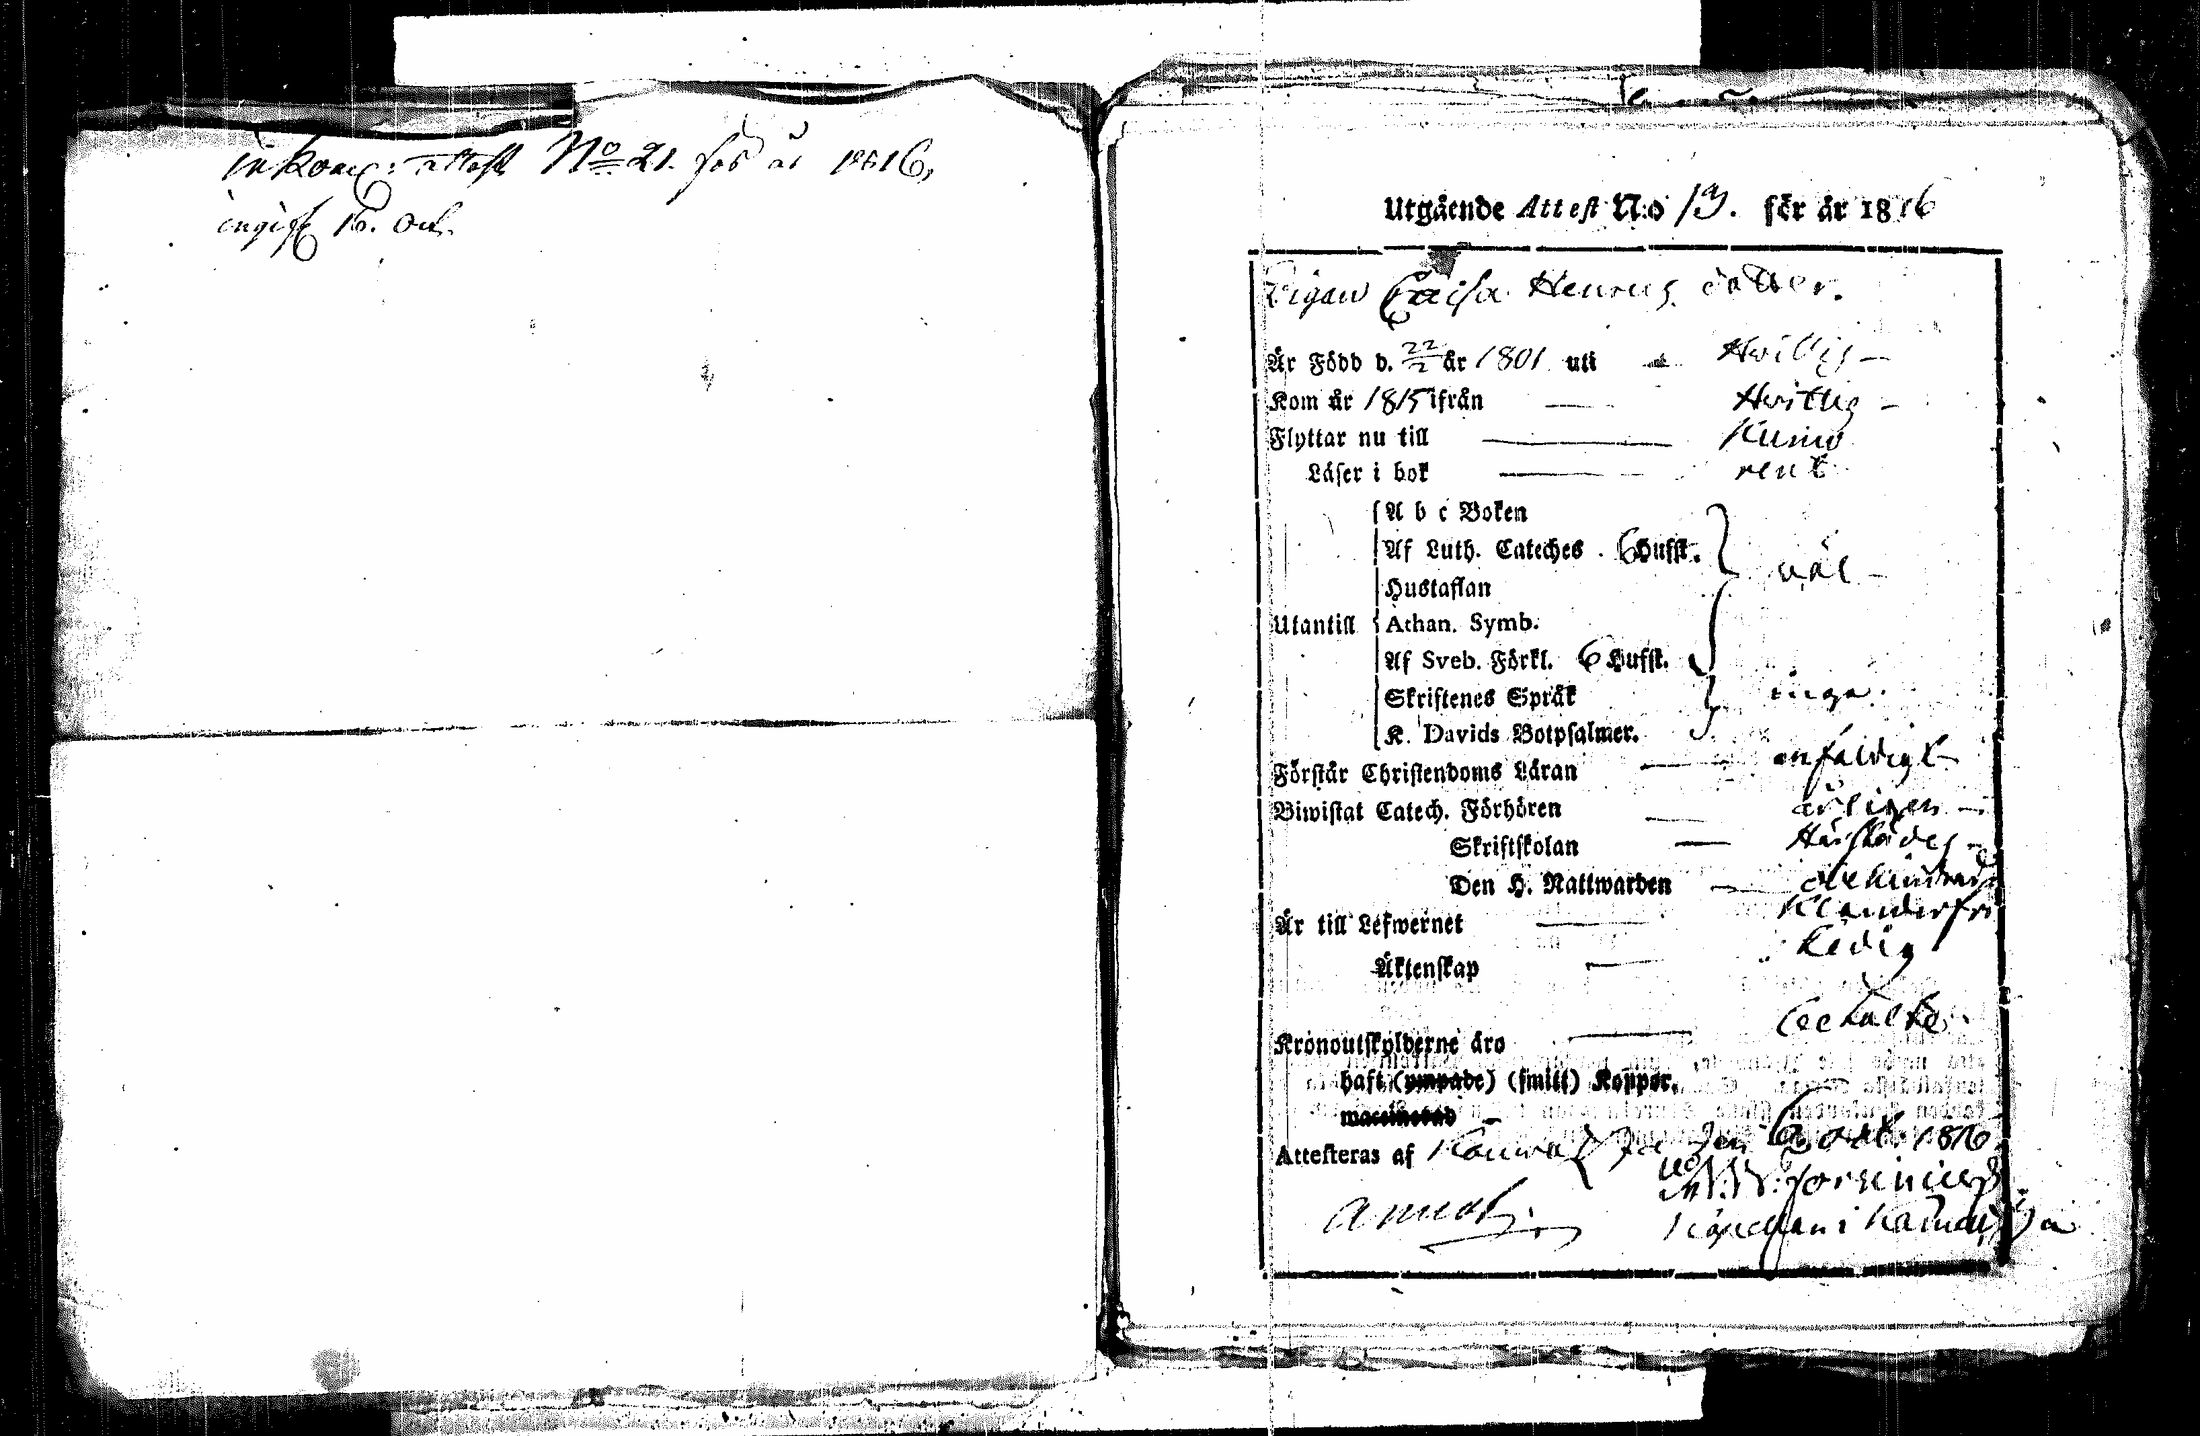 inkom: attest No 21. för år 1816,
ingift 16. Oct.
Utgående Attest N:o 13. för år 1816
Pigan Caisa Henrics dotter.
Är Född d. 22/2 år 1801 uti Hvittis —
Kom år 1815 ifrån — Hvittis —
Flyttar nu till — Kumo
Läser i bok — rent
A b c Boken
Af Luth. Cateches. 6 Hufst.
väl —
Hustaflan
Utantill Athan. Symb.
Af Sveb. Förkl. 6 Hufst.
Skriftenes Språk
inga.
K. Davids Botpsalmer.
Förstår Christendoms Läran — enfaldigt
Biwistat Catech. Förhören — årligen —
Skriftskolan — Härstädes —
Den H. Nattwarden — obehindrad
Är till Lefwernet — Klanderfri
Äktenskap — Ledig
Kronoutskylderne äro — betalte.
haft (ympade) (smitt) Koppor.
waccinerad —
Attesteras af den 6 Oct. 1816.
Caplan i